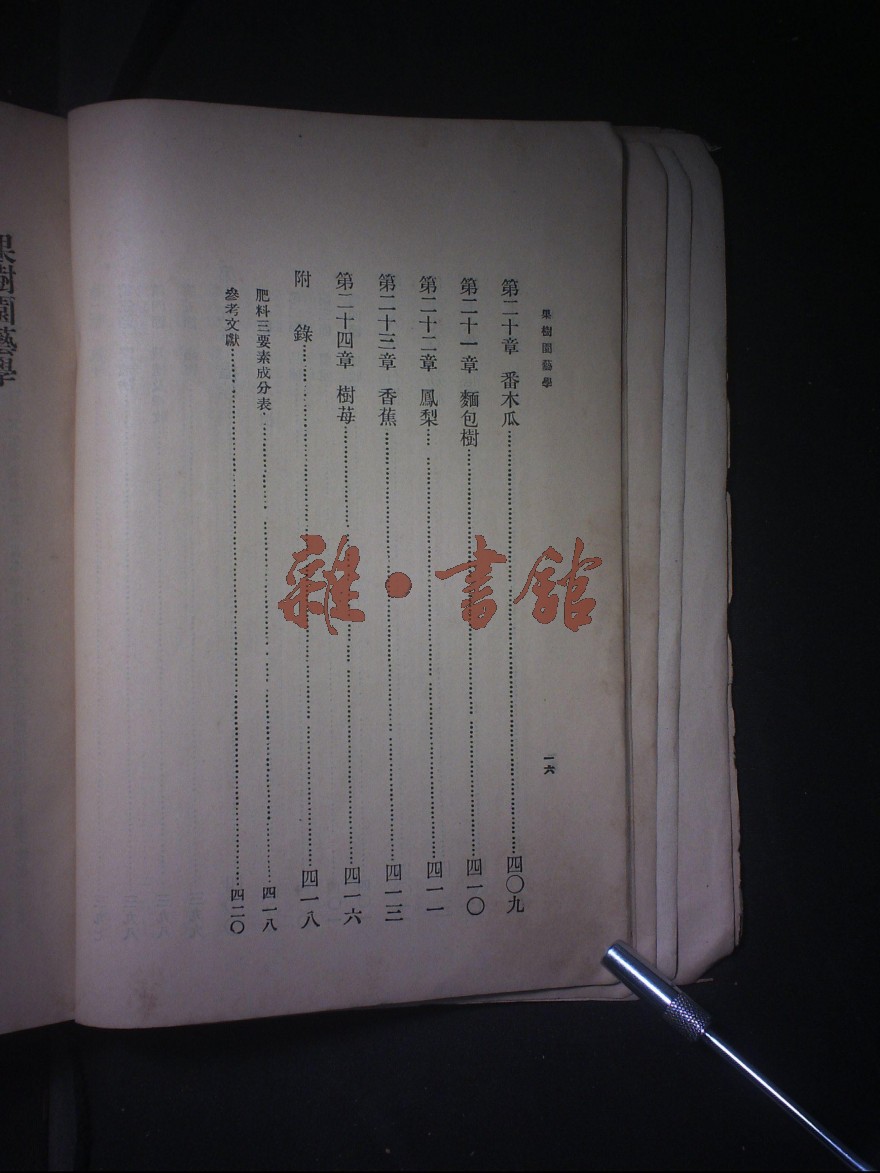 果樹園藝學
一六
第二十章 番木瓜……四〇九
第二十一章 麵包樹……四一〇
第二十二章 鳳梨……四一一
第二十三章 香蕉……四一三
第二十四章 樹莓……四一六
附錄……四一八
肥料三要素成分表……四一八
參考文獻……四二〇
果樹園藝學
雜·書館